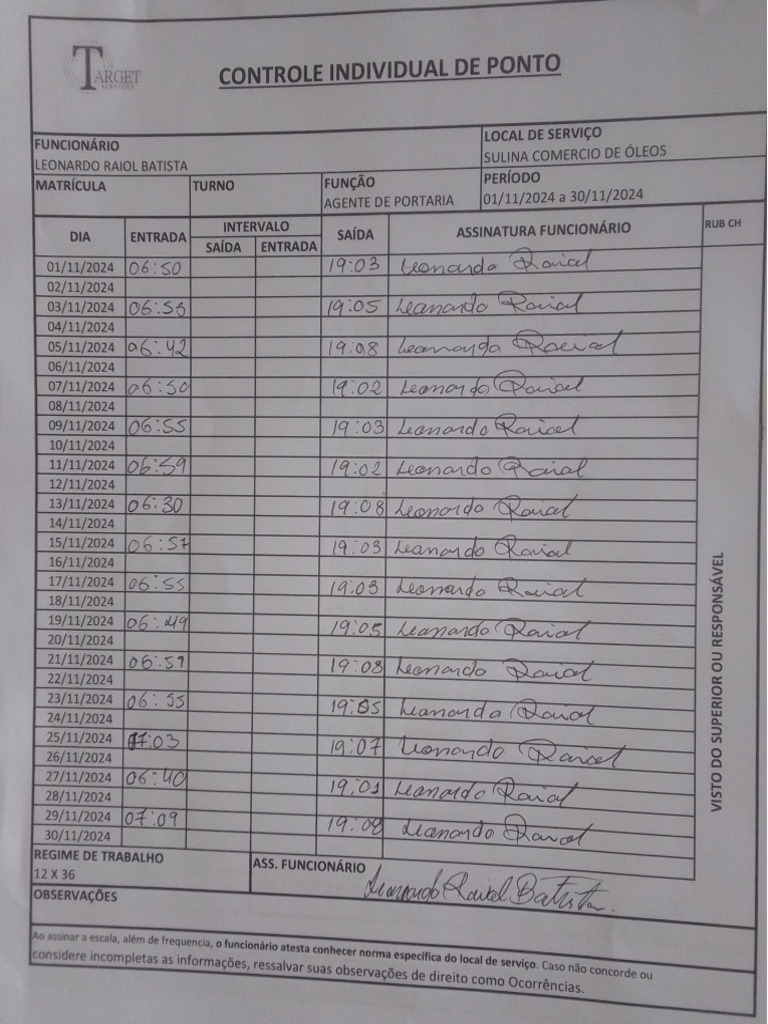 TARGET
SERVIÇOS
CONTROLE INDIVIDUAL DE PONTO
FUNCIONÁRIO
LEONARDO RAIOL BATISTA
LOCAL DE SERVIÇO
SULINA COMERCIO DE ÓLEOS
MATRÍCULA TURNO FUNÇÃO
AGENTE DE PORTARIA
PERÍODO
01/11/2024 a 30/11/2024
DIA ENTRADA INTERVALO SAÍDA ASSINATURA FUNCIONÁRIO RUB CH
SAÍDA ENTRADA
01/11/2024 06:50 19:03 Leonardo Raiol
02/11/2024
03/11/2024 06:53 19:05 Leonardo Raiol
04/11/2024
05/11/2024 06:42 19:08 Leonardo Raiol
06/11/2024
07/11/2024 06:50 19:02 Leonardo Raiol
08/11/2024
09/11/2024 06:55 19:03 Leonardo Raiol
10/11/2024
11/11/2024 06:59 19:02 Leonardo Raiol
12/11/2024
13/11/2024 06:30 19:08 Leonardo Raiol
14/11/2024
15/11/2024 06:57 19:03 Leonardo Raiol
16/11/2024
17/11/2024 06:55 19:03 Leonardo Raiol
18/11/2024
19/11/2024 06:49 19:05 Leonardo Raiol
20/11/2024
21/11/2024 06:51 19:08 Leonardo Raiol
22/11/2024
23/11/2024 06:55 19:05 Leonardo Raiol
24/11/2024
25/11/2024 07:03 19:07 Leonardo Raiol
26/11/2024
27/11/2024 06:40 19:01 Leonardo Raiol
28/11/2024
29/11/2024 07:09 19:08 Leonardo Raiol
30/11/2024
VISTO DO SUPERIOR OU RESPONSÁVEL
REGIME DE TRABALHO
12 X 36
ASS. FUNCIONÁRIO Leonardo Raiol Batista
OBSERVAÇÕES
Ao assinar a escala, além de frequencia, o funcionário atesta conhecer norma especifica do local de serviço. Caso não concorde ou
considere incompletas as informações, ressalvar suas observações de direito como Ocorrências.